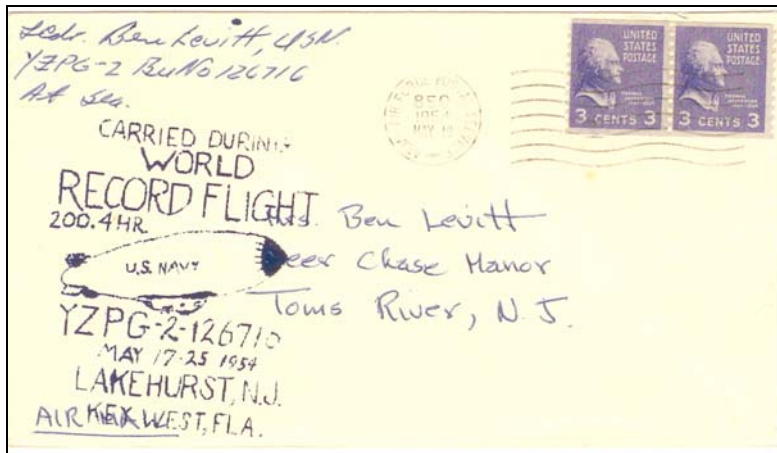 Lcdr. Ben Levitt, USN.
YZPG-2 BuNo 126716
At Sea.
UNITED
STATES
POSTAGE
UNITED
STATES
POSTAGE
3 CENTS 3
3 CENTS 3
1954
MAY
CARRIED DURING
WORLD
RECORD FLIGHT
200.4 HR.
U.S. NAVY
YZPG-2-126716
MAY 17-25 1954
LAKEHURST, N.J.
KEY WEST, FLA.
AIR
Mrs. Ben Levitt
Deer Chase Manor
Toms River, N.J.